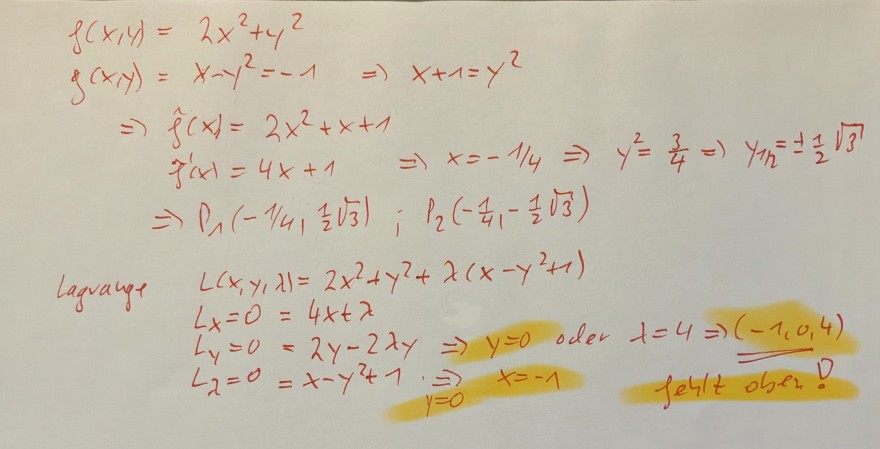 f(x,y) = 2x²+y²
g(x,y) = x-y²=-1 ⇒ x+1=y²
⇒ f̃(x) = 2x²+x+1
f̃'(x) = 4x+1 ⇒ x=-1/4 ⇒ y²=3/4 ⇒ y₁/₂=±1/2√3
⇒ P₁(-1/4, 1/2√3) ; P₂(-1/4, -1/2√3)
Lagrange L(x,y,λ)= 2x²+y²+λ(x-y²+1)
Lₓ=0 = 4x+λ
L_y=0 = 2y-2λy ⇒ y=0 oder λ=4 ⇒ (-1,0,4)
L_λ=0 = x-y²+1 ⇒ x=-1 fehlt oben!
y=0